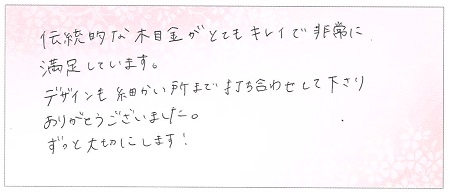 伝統的な木目金がとてもキレイで非常に
満足しています。
デザインも細かい所まで打ち合わせして下さり
ありがとうございました。
ずっと大切にします!